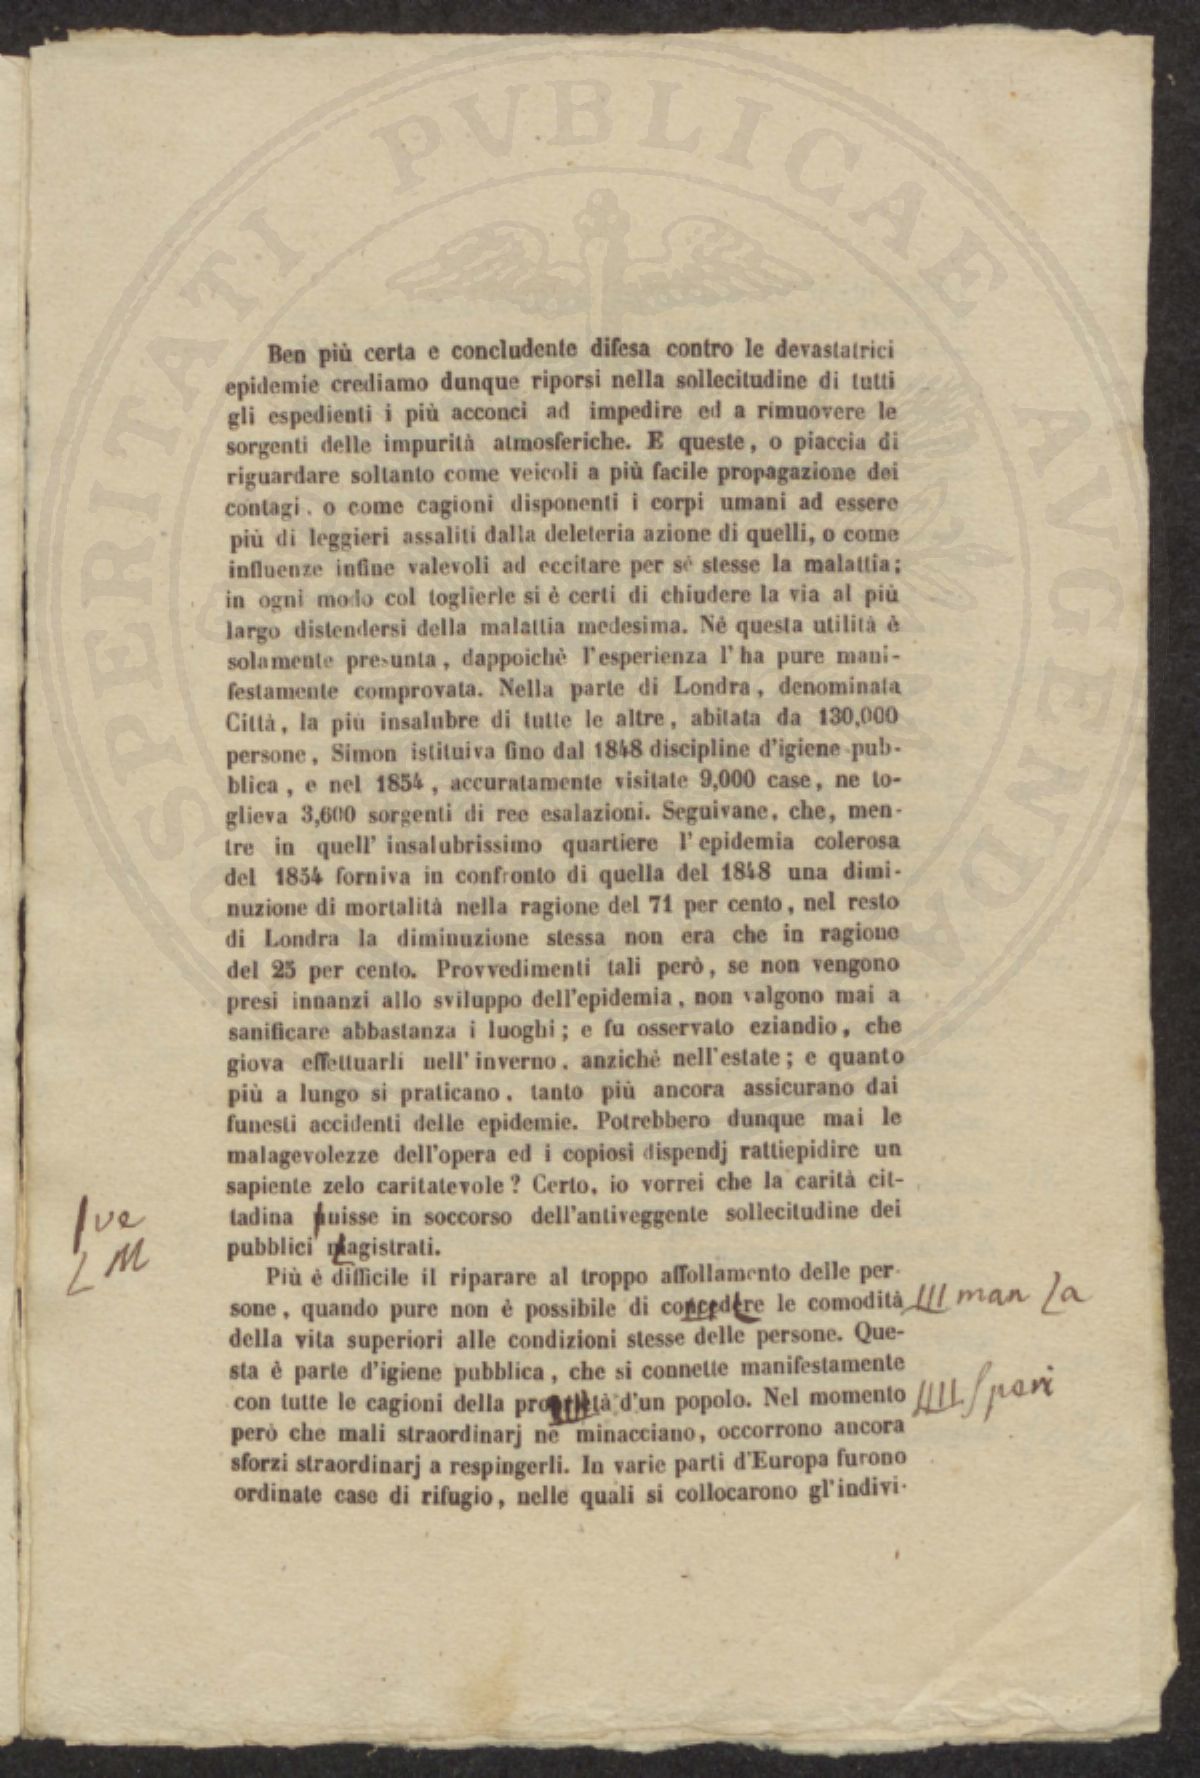 Ben più certa e concludente difesa contro le devastatrici
epidemie crediamo dunque riporsi nella sollecitudine di tutti
gli espedienti i più acconci ad impedire ed a rimuovere le
sorgenti delle impurità atmosferiche. E queste, o piaccia di
riguardare soltanto come veicoli a più facile propagazione dei
contagi, o come cagioni disponenti i corpi umani ad essere
più di leggieri assaliti dalla deleteria azione di quelli, o come
influenze infine valevoli ad eccitare per sé stesse la malattia;
in ogni modo col toglierle si è certi di chiudere la via al più
largo distendersi della malattia medesima. Né questa utilità è
solamente presunta, dappoichè l'esperienza l'ha pure mani-
festamente comprovata. Nella parte di Londra, denominata
Città, la più insalubre di tutte le altre, abitata da 130,000
persone, Simon istituiva fino dal 1848 discipline d'igiene pub-
blica, e nel 1854, accuratamente visitate 9,000 case, ne to-
glieva 3,600 sorgenti di ree esalazioni. Seguivane, che, men-
tre in quell' insalubrissimo quartiere l'epidemia colerosa
del 1854 forniva in confronto di quella del 1848 una dimi-
nuzione di mortalità nella ragione del 71 per cento, nel resto
di Londra la diminuzione stessa non era che in ragione
del 25 per cento. Provvedimenti tali però, se non vengono
presi innanzi allo sviluppo dell'epidemia, non valgono mai a
sanificare abbastanza i luoghi; e fu osservato eziandio, che
giova effettuarli nell'inverno, anzichè nell'estate; e quanto
più a lungo si praticano, tanto più ancora assicurano dai
funesti accidenti delle epidemie. Potrebbero dunque mai le
malagevolezze dell'opera ed i copiosi dispendj rattiepidire un
sapiente zelo caritatevole? Certo, io vorrei che la carità cit-
tadina nuisse in soccorso dell'antiveggente sollecitudine dei
ve
pubblici magistrati.
M
Più è difficile il riparare al troppo affollamento delle per-
sone, quando pure non è possibile di concedere le comodità
man a
della vita superiori alle condizioni stesse delle persone. Que-
sta è parte d'igiene pubblica, che si connette manifestamente
con tutte le cagioni della proprietà d'un popolo. Nel momento
speri
però che mali straordinarj ne minacciano, occorrono ancora
sforzi straordinarj a respingerli. In varie parti d'Europa furono
ordinate case di rifugio, nelle quali si collocarono gl'indivi-
PROSPERITATI PVBLICAE AVGENDAE